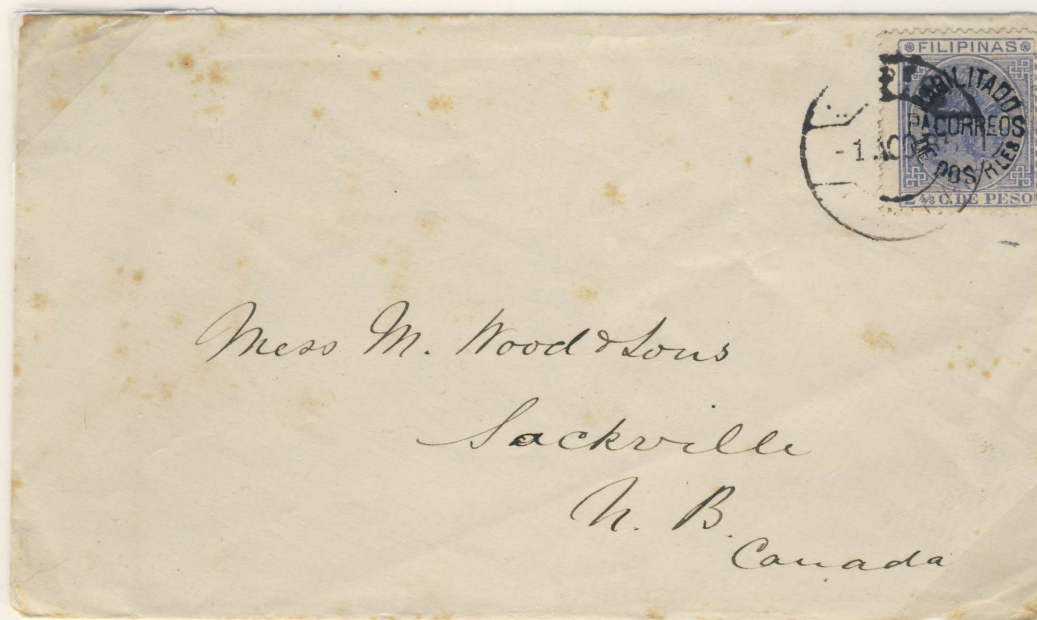 FILIPINAS
HABILITADO
PA CORREOS
DE
2 4/8 C. DE PESO
Mess M. Wood & Sons
Sackville
N. B.
Canada